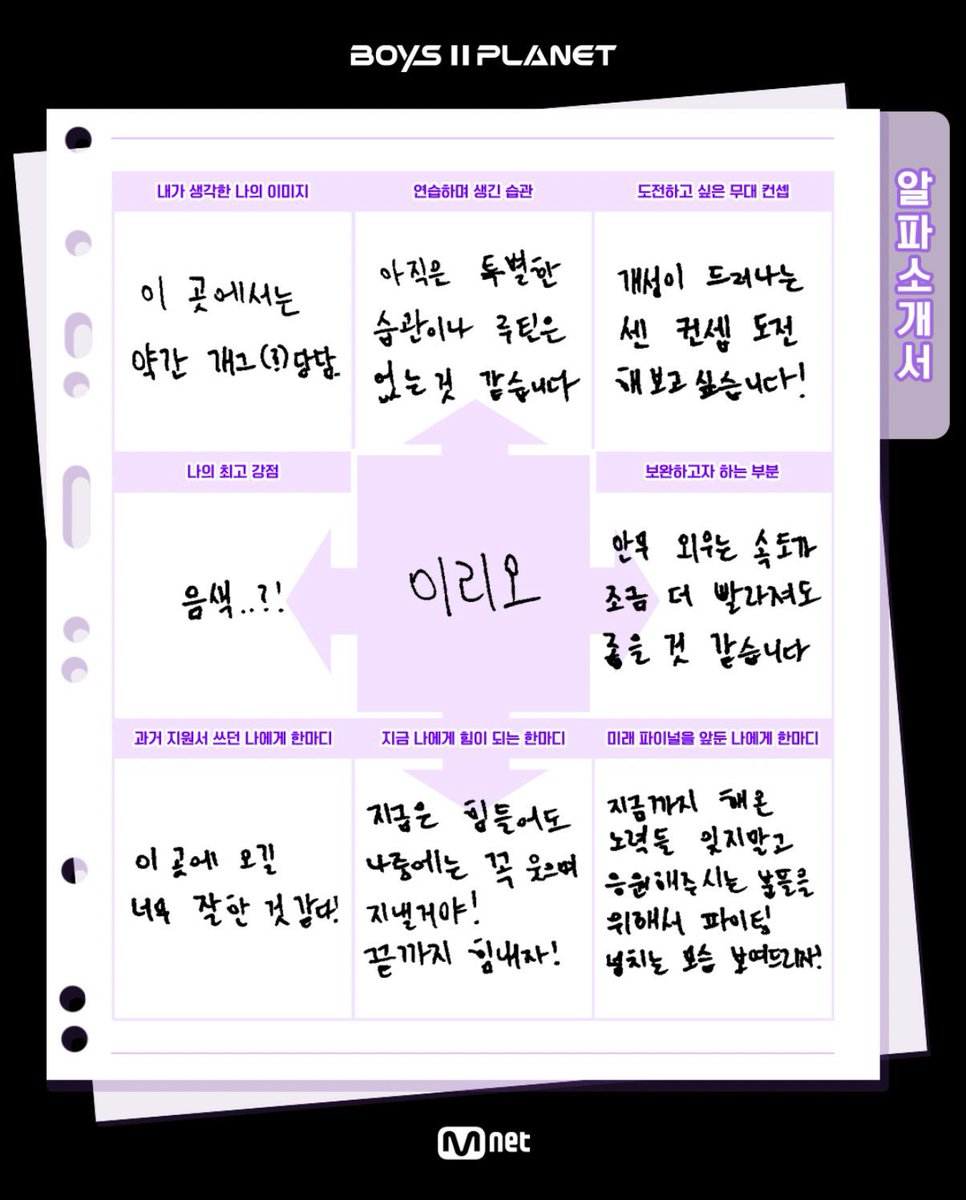 BOYS II PLANET
알파소개서
내가 생각한 나의 이미지
이 곳에서는
약간 개그(?)담당
연습하며 생긴 습관
아직은 특별한
습관이나 루틴은
없는 것 같습니다
도전하고 싶은 무대 컨셉
개성이 드러나는
센 컨셉 도전
해보고 싶습니다!
나의 최고 강점
음색..?!
이리오
보완하고자 하는 부분
안무 외우는 속도가
조금 더 빨라져도
좋을 것 같습니다
과거 지원서 쓰던 나에게 한마디
이 곳에 오길
너무 잘한 것 같다!
지금 나에게 힘이 되는 한마디
지금은 힘들어도
나중에는 꼭 웃으며
지낼거야!
끝까지 힘내자!
미래 파이널을 앞둔 나에게 한마디
지금까지 해온
노력들 잊지말고
응원해주시는 분들을
위해서 파이팅
넘치는 모습 보여드리자!
Mnet